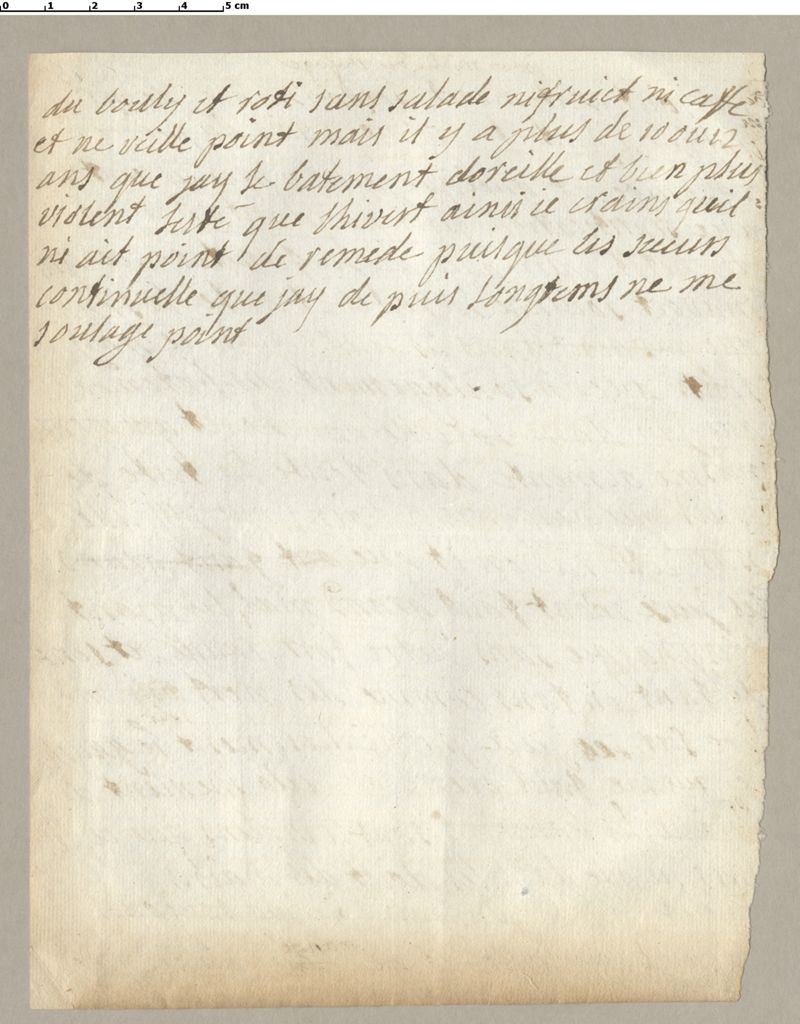 0 1 2 3 4 5 cm
du bouly et roti sans salade nifruict ni caffe
et ne veille point mais il y a plus de 10 ou 12
ans que jay le batement doreille et bien plus
violent lesté que lhivert ainsi ie crains quil
ni ait point de remede puisque les sueurs
continuelle que jay de puis longtems ne me
soulage point